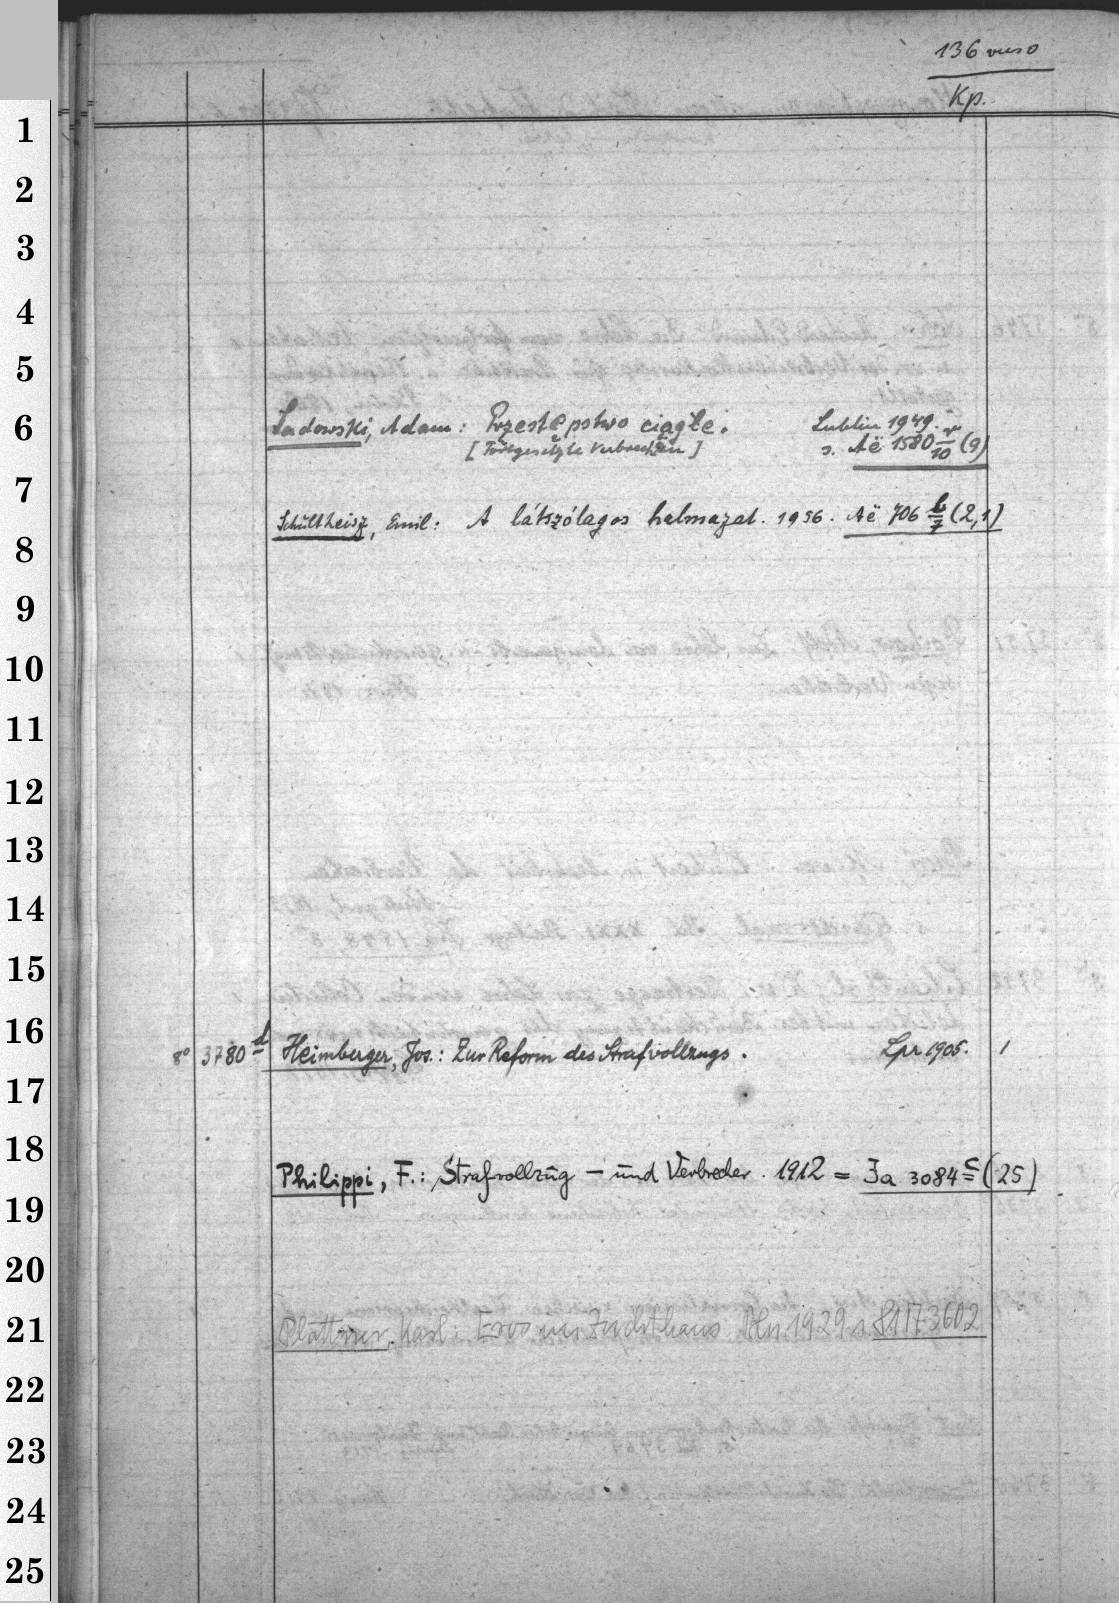 136 verso
Kp.
1
2
3
4
5
6
Sadowski, Adam: Przestępstwo ciągłe. Lublin 1949.
[Fortgesetzte Verbrechen] s. Aë 1580 v/10 (9)
7
Schultheisz, Emil: A látszólagos halmazat. 1956. Aë 706 b/7 (2,1)
8
9
10
11
12
13
14
15
16
8° 3780 d Heimberger, Jos.: Zur Reform des Strafvollzugs. Lpz. 1905. 1
17
18
Philippi, F.: Strafvollzug – und Verbrecher. 1912 = Ja 3084 c (25)
19
20
21
Plättner, Karl: Eros im Zuchthaus. Bln. 1929 s. 8 1173602
22
23
24
25